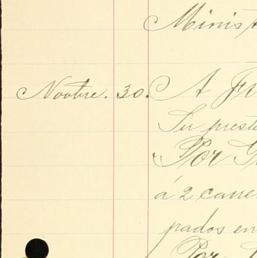 Minist
Novbre. 30. A Ju
Su presto
Por G
á 2 carre
pados en
Por